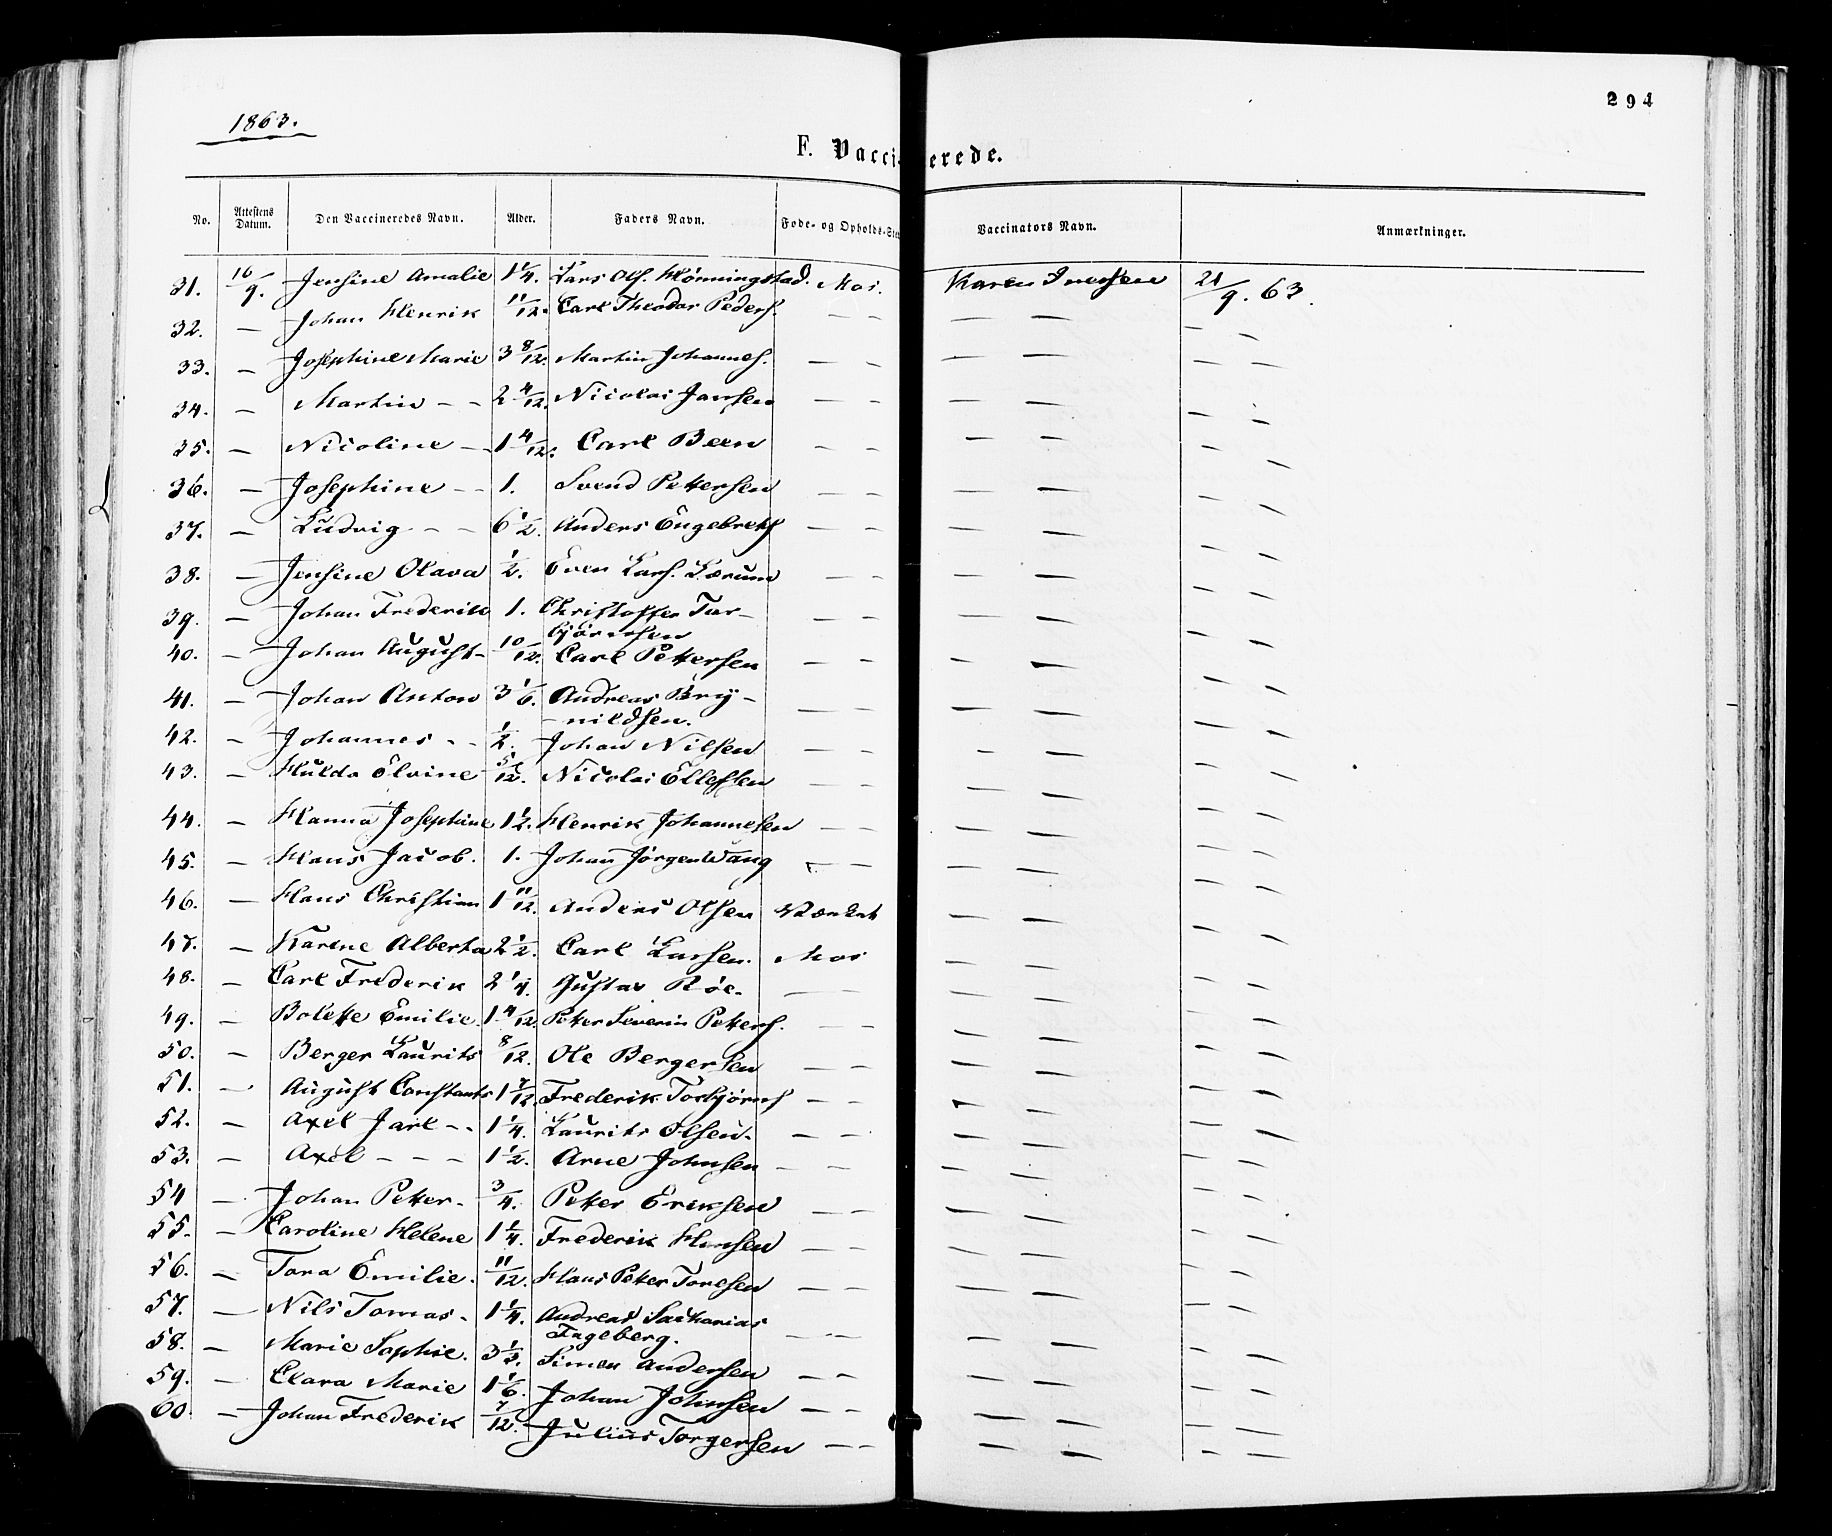 294
1863.
F. Vaccinerede.
No. Attestens Datum. Den Vaccineredes Navn. Alder. Faders Navn. Føde- og Opholds-Sted Vaccinators Navn. Anmærkninger.
31. 16/9. Jensine Amalie 1 1/4. Lars Ols. Hönningstad. Mos. Karen 21/9. 63.
32. — Johan Henrik 11/12. Carl Theodor Peders. — — — — — —
33. — Josephine Marie 3 8/12. Martin Johannes. — — — — — —
34. — Martin - - 2 4/12. Nicolai Jansen — — — — — —
35. — Nicoline - 1 4/12. Carl Been — — — — — —
36. — Josephine - - 1. Svend Pettersen — — — — — —
37. — Ludvig - - 6 1/2. Anders Engebrets — — — — — —
38. — Jensine Olava 1/2. Even Lars. Lærum — — — — — —
39. — Johan Frederik 1. Christoffer Tor-
björnsen — — — —
40. — Johan August - 10/12. Carl Pettersen — — — — — —
41. — Johan Anton 3 1/6. Andreas Bry-
-nildsen. — — — — — —
42. — Johannes - - 1/2. Johan Nilsen — — — — — —
43. — Hulda Elvine 5/12. Nicolai Ellefsen — — — — — —
44. — Hanna Josephine 1 1/2. Henrik Johannesen — — — — — —
45. — Hans Jacob. 1. Johan Jörgen Wang — — — — — —
46. — Hans Christian 1 11/12. Anders Olsen Værket — — — —
47. — Karine Alberta 2 1/2. Carl Larsen. Mos — — — —
48. — Carl Frederik 2 1/4. Gustav Röe. — — — — — —
49. — Bolette Emilie. 1 4/12. Petter Severin Petters. — — — — — —
50. — Berger Laurits 8/12. Ole Bergersen — — — — — —
51. — August Constants 1 7/12. Frederik Torbjörns — — — — — —
52. — Axel Jarl - - 1 1/4. Laurits Olsen. — — — — — —
53. — Axel - - - 1 1/2. Arne Johnsen — — — — — —
54 — Johan Petter - 3/4. Petter Eriksen — — — — — —
55. — Caroline Helene 1 1/4. Frederik Hansen — — — — — —
56. — Tora Emilie. 11/12. Hans Petter Toresen — — — — — —
57. — Nils Tomas - 1 1/4. Andreas Sacharias
Fageberg. — — — — — —
58. — Marie Sophie. 3 1/3. Simen Andersen — — — — — —
59. — Clara Marie 1 1/6. Johan Johnsen — — — — — —
60. — Johan Frederik 7/12. Julius Torgersen — — — — — —